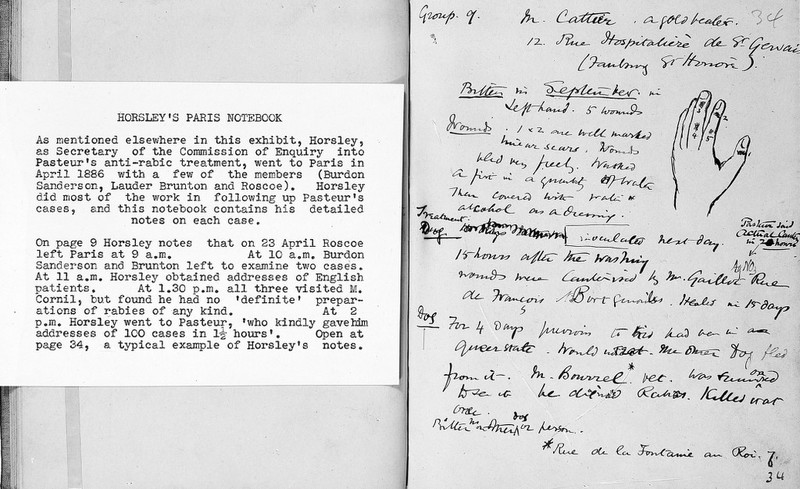 HORSLEY'S PARIS NOTEBOOK
As mentioned elsewhere in this exhibit, Horsley,
as Secretary of the Commission of Enquiry into
Pasteur's anti-rabic treatment, went to Paris in
April 1886 with a few of the members (Burdon
Sanderson, Lauder Brunton and Roscoe). Horsley
did most of the work in following up Pasteur's
cases, and this notebook contains his detailed
notes on each case.
On page 9 Horsley notes that on 23 April Roscoe
left Paris at 9 a.m. At 10 a.m. Burdon
Sanderson and Brunton left to examine two cases.
At 11 a.m. Horsley obtained addresses of English
patients. At 1.30 p.m. all three visited M.
Cornil, but found he had no 'definite' prepar-
ations of rabies of any kind. At 2
p.m. Horsley went to Pasteur, 'who kindly gavehim
addresses of 100 cases in 1½ hours'. Open at
page 34, a typical example of Horsley's notes.
Group. 9. M. Cattier. a goldbeater. 34
12. Rue Hospitalière de St Gervais
(Faubourg St Honoré).
Bitten in September in
left hand. 5 wounds
Wounds. 1 x 2 are well marked
linear scars. Wounds
bled very freely. Washed
a first in a quantity of water
Then covered with
alcohol as a dressing.
3
2
1
4
5
Treatment.
Dog
inoculated next day.
Pasteur said
15 hours after the washing
Ag NO3
wounds were Cauterised by M. Gaillot Rue
de François Healed in 15 days
Dog For 4 Days previous to had been in a
queer state. Would The other Dog fled
from it. M. Bourrel * vet. was
to see it he Rabies. Killed it at
once.
Bitten no other dog or person.
* Rue de la Fontaine au Roi. 7.
34